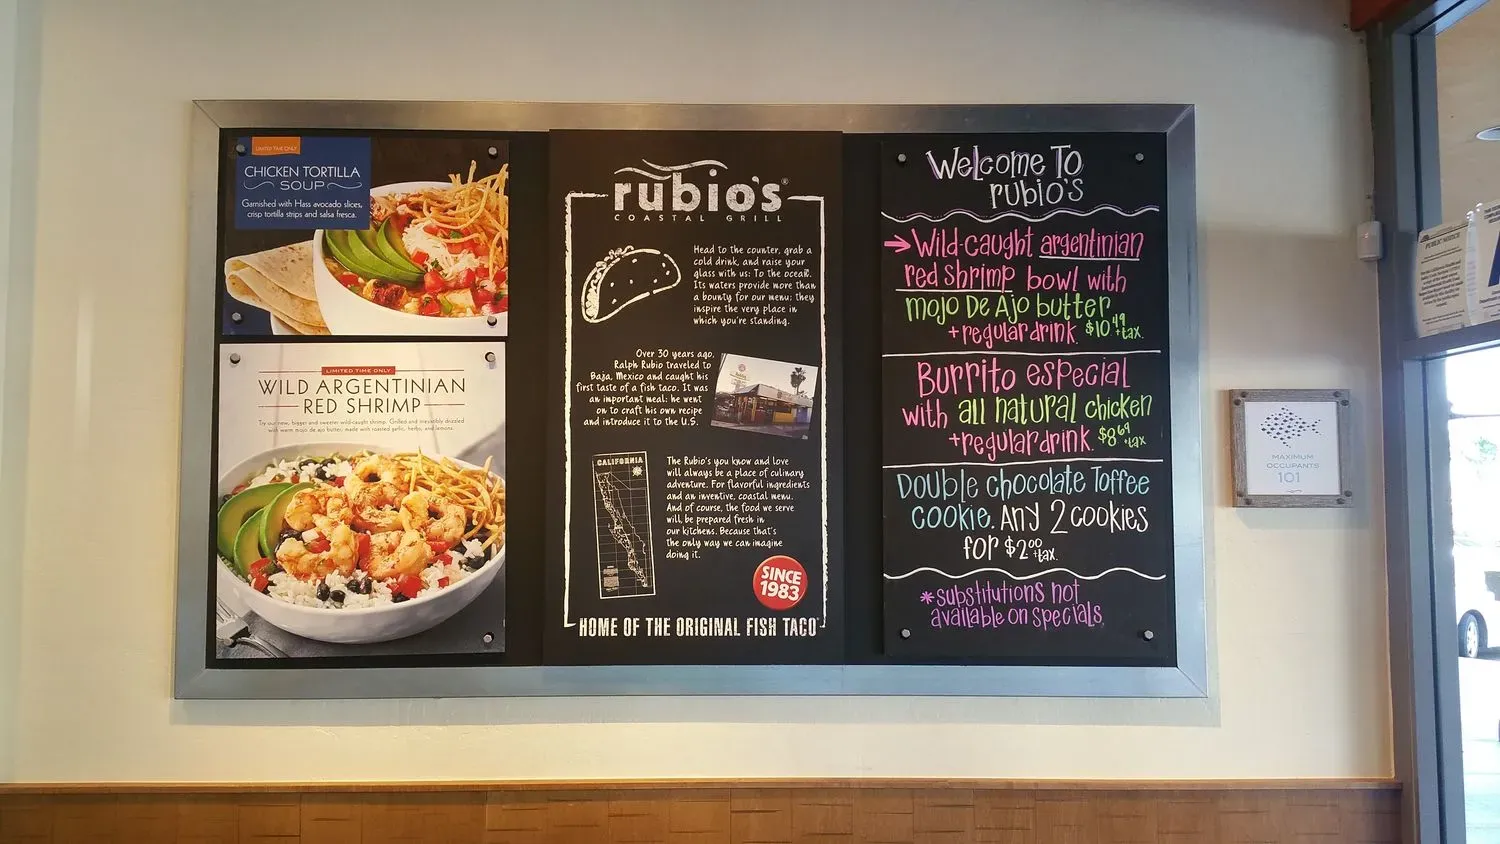 LIMITED TIME ONLY
CHICKEN TORTILLA
SOUP
Garnished with Hass avocado slices,
crisp tortilla strips and salsa fresca.
LIMITED TIME ONLY
WILD ARGENTINIAN
RED SHRIMP
Try our new, bigger and sweeter wild-caught shrimp. Grilled and irresistibly drizzled
with warm mojo de ajo butter, made with roasted garlic, herbs, and lemons.
rubio's®
COASTAL GRILL
Head to the counter, grab a
cold drink, and raise your
glass with us: To the ocean.
Its waters provide more than
a bounty for our menu; they
inspire the very place in
which you're standing.
Over 30 years ago,
Ralph Rubio traveled to
Baja, Mexico and caught his
first taste of a fish taco. It was
an important meal: he went
on to craft his own recipe
and introduce it to the U.S.
CALIFORNIA
The Rubio's you know and love
will always be a place of culinary
adventure. For flavorful ingredients
and an inventive, coastal menu.
And of course, the food we serve
will be prepared fresh in
our kitchens. Because that's
the only way we can imagine
doing it.
SINCE
1983
HOME OF THE ORIGINAL FISH TACO®
Welcome To
rubio's
→ Wild-caught argentinian
red shrimp bowl with
mojo De Ajo butter
+regular drink. $10.49 +tax.
Burrito especial
with all natural chicken
+regular drink. $8.69 +tax
Double chocolate Toffee
cookie. Any 2 cookies
for $2.00 +tax.
*substitutions not
available on specials.
MAXIMUM
OCCUPANTS
101
PUBLIC NOTICE